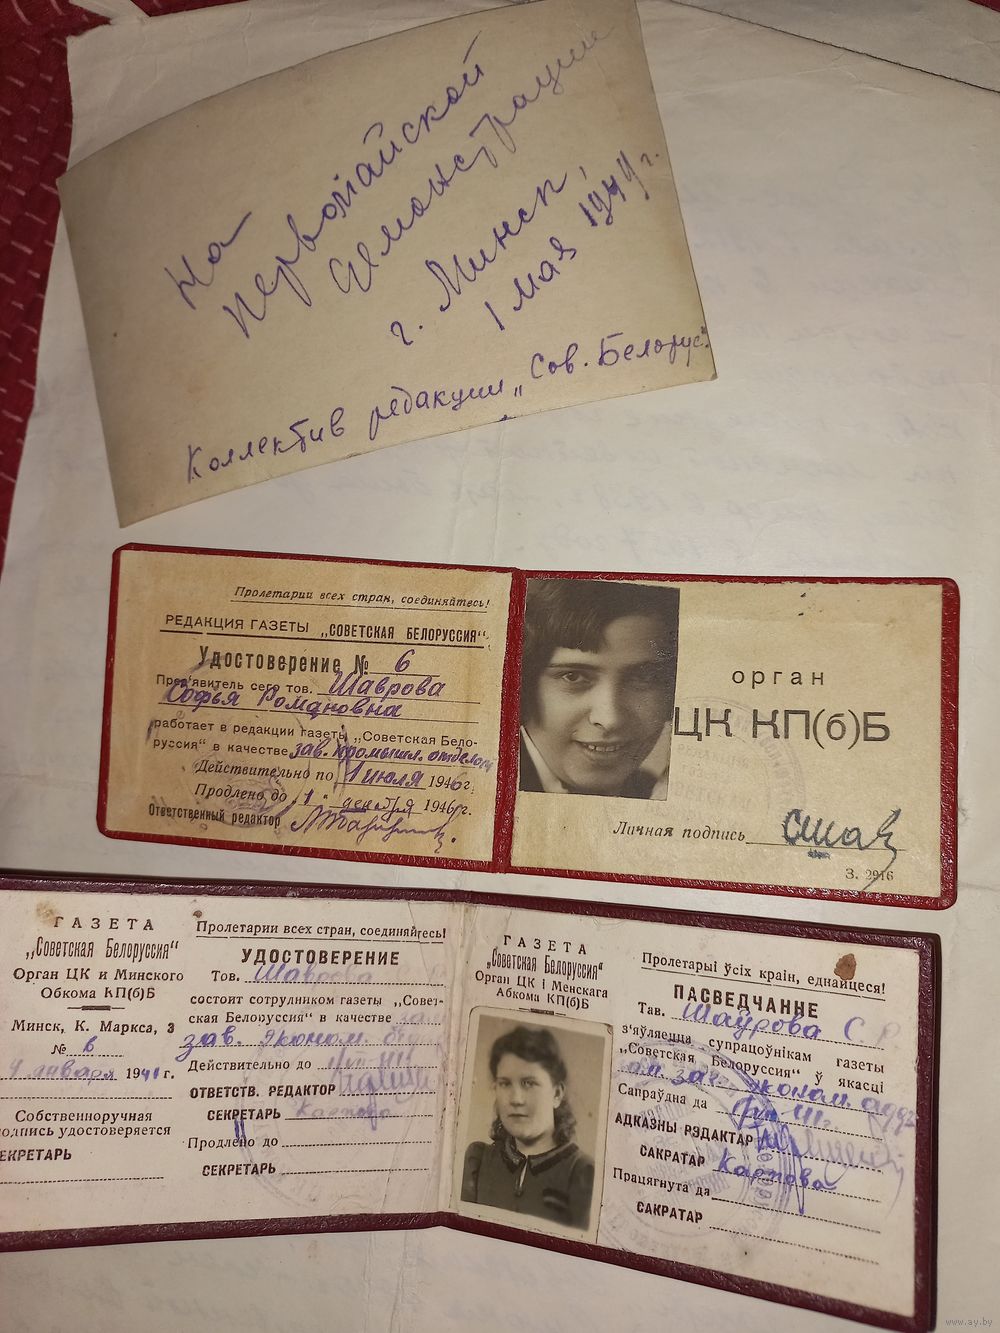 На
первомайской
демонстрации
г. Минск,
1 мая 1944 г.
Коллектив редакции „Сов. Белорус."
Пролетарии всех стран, соединяйтесь!
РЕДАКЦИЯ ГАЗЕТЫ „СОВЕТСКАЯ БЕЛОРУССИЯ“
Удостоверение № 6
Пред'явитель сего тов. Шаврова
Софья Романовна
работает в редакции газеты „Советская Бело-
руссия“ в качестве зав. промышл. отделом
Действительно по 1 июля 1946 г.
Продлено до „1 “ декабря 1946 г.
Ответственный редактор
орган
ЦК КП(б)Б
Личная подпись
З. 2916
ГАЗЕТА
„Советская Белоруссия“
Орган ЦК и Минского
Обкома КП(б)Б
Минск, К. Маркса, 3
№ 6
января 194 г.
Собственноручная
подпись удостоверяется
СЕКРЕТАРЬ
Пролетарии всех стран, соединяйтесь!
УДОСТОВЕРЕНИЕ
Тов. Шаврова
состоит сотрулником газеты „Совет-
ская Белоруссия“ в качестве зам.
зав. эконом.
Действительно до
ОТВЕТСТВ. РЕДАКТОР
СЕКРЕТАРЬ Карпова
Продлено до
СЕКРЕТАРЬ
ГАЗЕТА
„Советская Белоруссия“
Орган ЦК і Менскага
Абкома КП(б)Б
Пролетарыі ўсіх краін, еднайцеся!
ПАСВЕДЧАННЕ
Тав. Шаўрова С. Р.
з'яўляецца супрацоўнікам газеты
„Советская Белоруссия“ ў якасці
заг. эконом. аддз.
Сапраўдна да
АДКАЗНЫ РЭДАКТАР
САКРАТАР Карпова
Працягнута да
САКРАТАР
www.ay.by